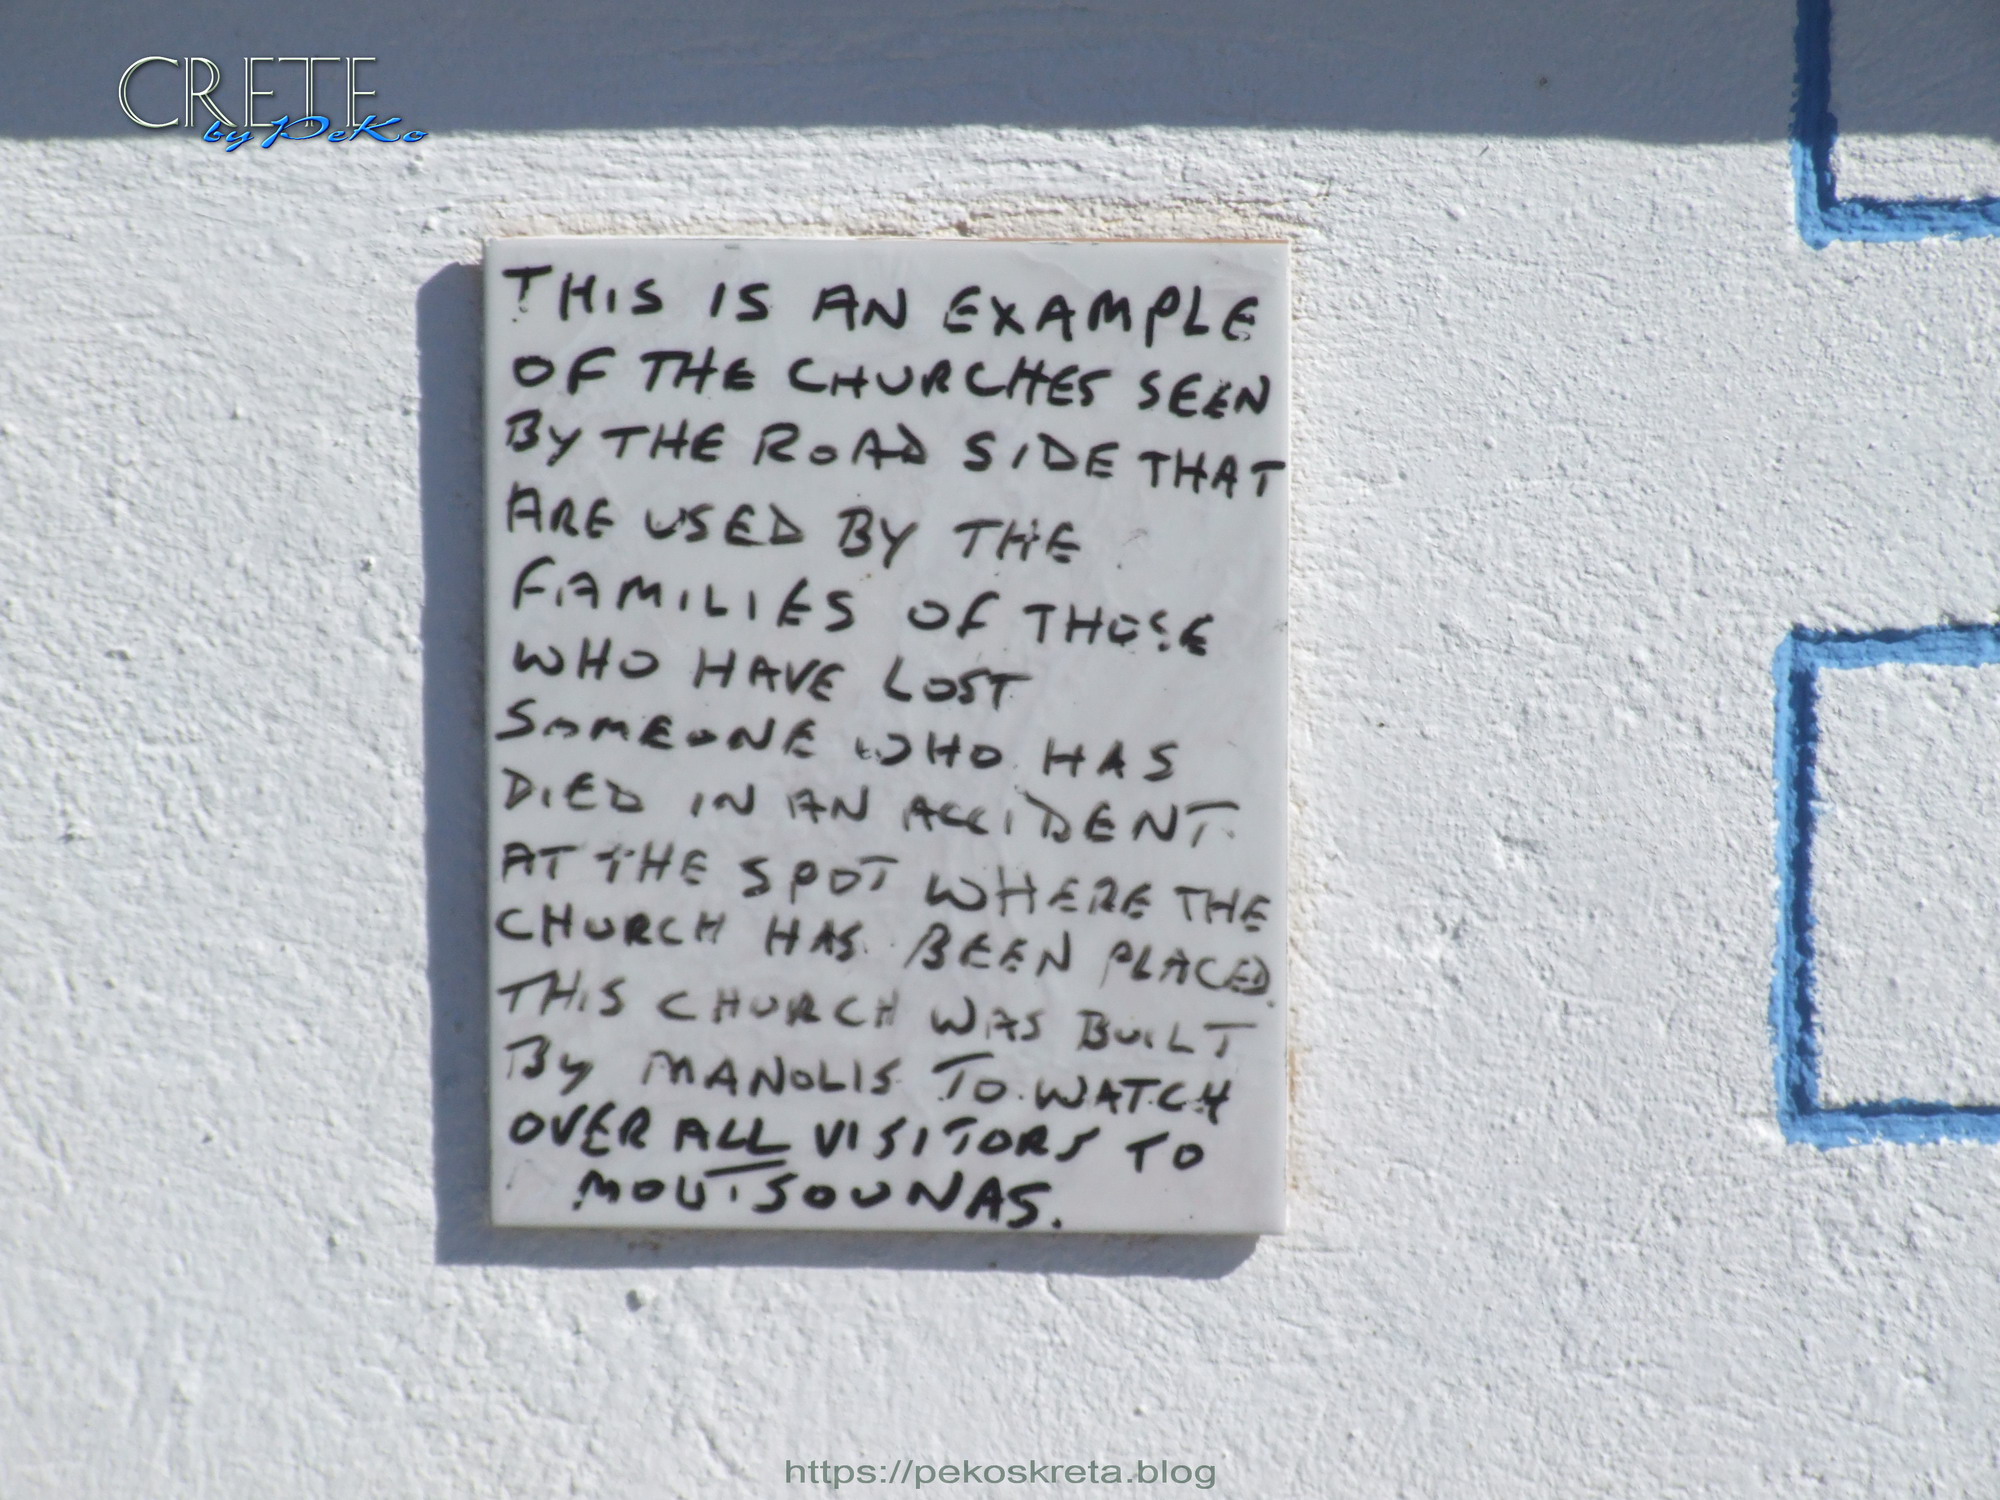 CRETE
by PeKo
THIS IS AN EXAMPLE
OF THE CHURCHES SEEN
BY THE ROAD SIDE THAT
ARE USED BY THE
FAMILIES OF THOSE
WHO HAVE LOST
SOMEONE WHO HAS
DIED IN AN ACCIDENT
AT THE SPOT WHERE THE
CHURCH HAS BEEN PLACED.
THIS CHURCH WAS BUILT
BY MANOLIS TO WATCH
OVER ALL VISITORS TO
MOUTSOUNAS.
https://pekoskreta.blog